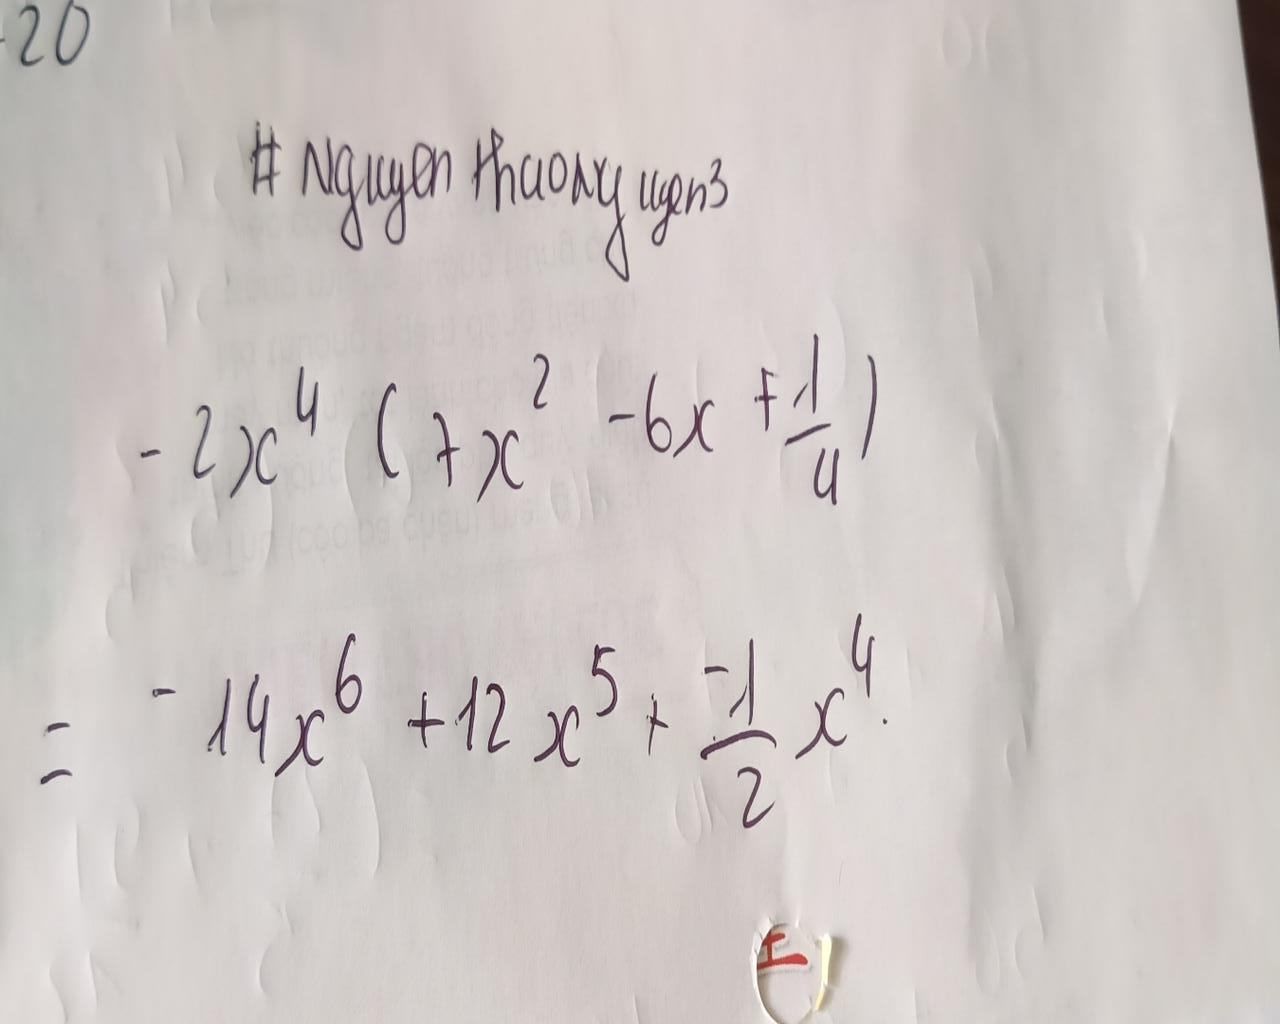 -20
# Nguyen thuong uyen3
-2x⁴ (7x² -6x + 1/4)
= -14x⁶ +12x⁵ + -1/2 x⁴.